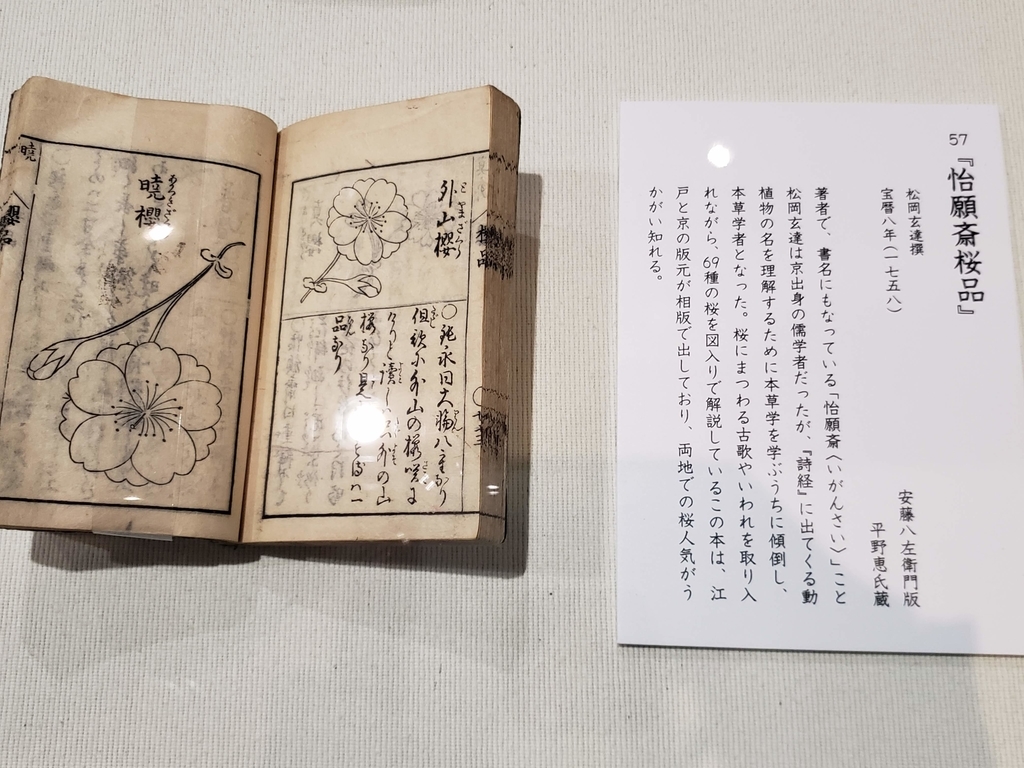 57
『怡願斎桜品』
松岡玄達撰
宝暦八年(一七五八)
安藤八左衛門版
平野恵氏蔵
著者で、書名にもなっている「怡願斎〈いがんさい〉」こと
松岡玄達は京出身の儒学者だったが、『詩経』に出てくる動
植物の名を理解するために本草学を学ぶうちに傾倒し、
本草学者となった。桜にまつわる古歌やいわれを取り入
れながら、69種の桜を図入りで解説しているこの本は、江
戸と京の版元が相版で出しており、両地での桜人気がう
かがい知れる。
外山櫻
永曰大輪八重なり
外山の櫻咲
品なり
曉櫻
曉